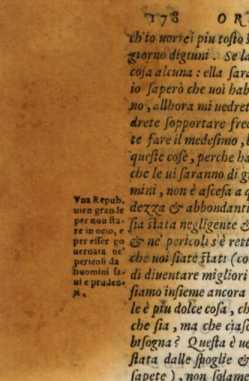 178 OR
ch'io uorrei piu tosto
giorno digiuni. Se la
cosa alcuna: ella sar
io saperò che uoi hab
no, allhora mi uedret
drete sopportare fre
te fare il medesimo,
queste cose, perche ha
che le ui saranno di g
mini, non è ascesa a q
dezza & abbondanti
sia stata negligente &
& ne' pericoli s'è rett
che uoi siate stati (co
di diuentare migliori
siamo insieme ancora
le è piu dolce cosa, ch
che sia, ma che ciasc
bisogna? Questa è ue
stata dalle spoglie &
sapete), non solame
Vna Repub.
uien grande
per non sta-
re in ocio, e
per esser go
uernata ne'
pericoli da
huomini sa-
ui e pruden-
ti.